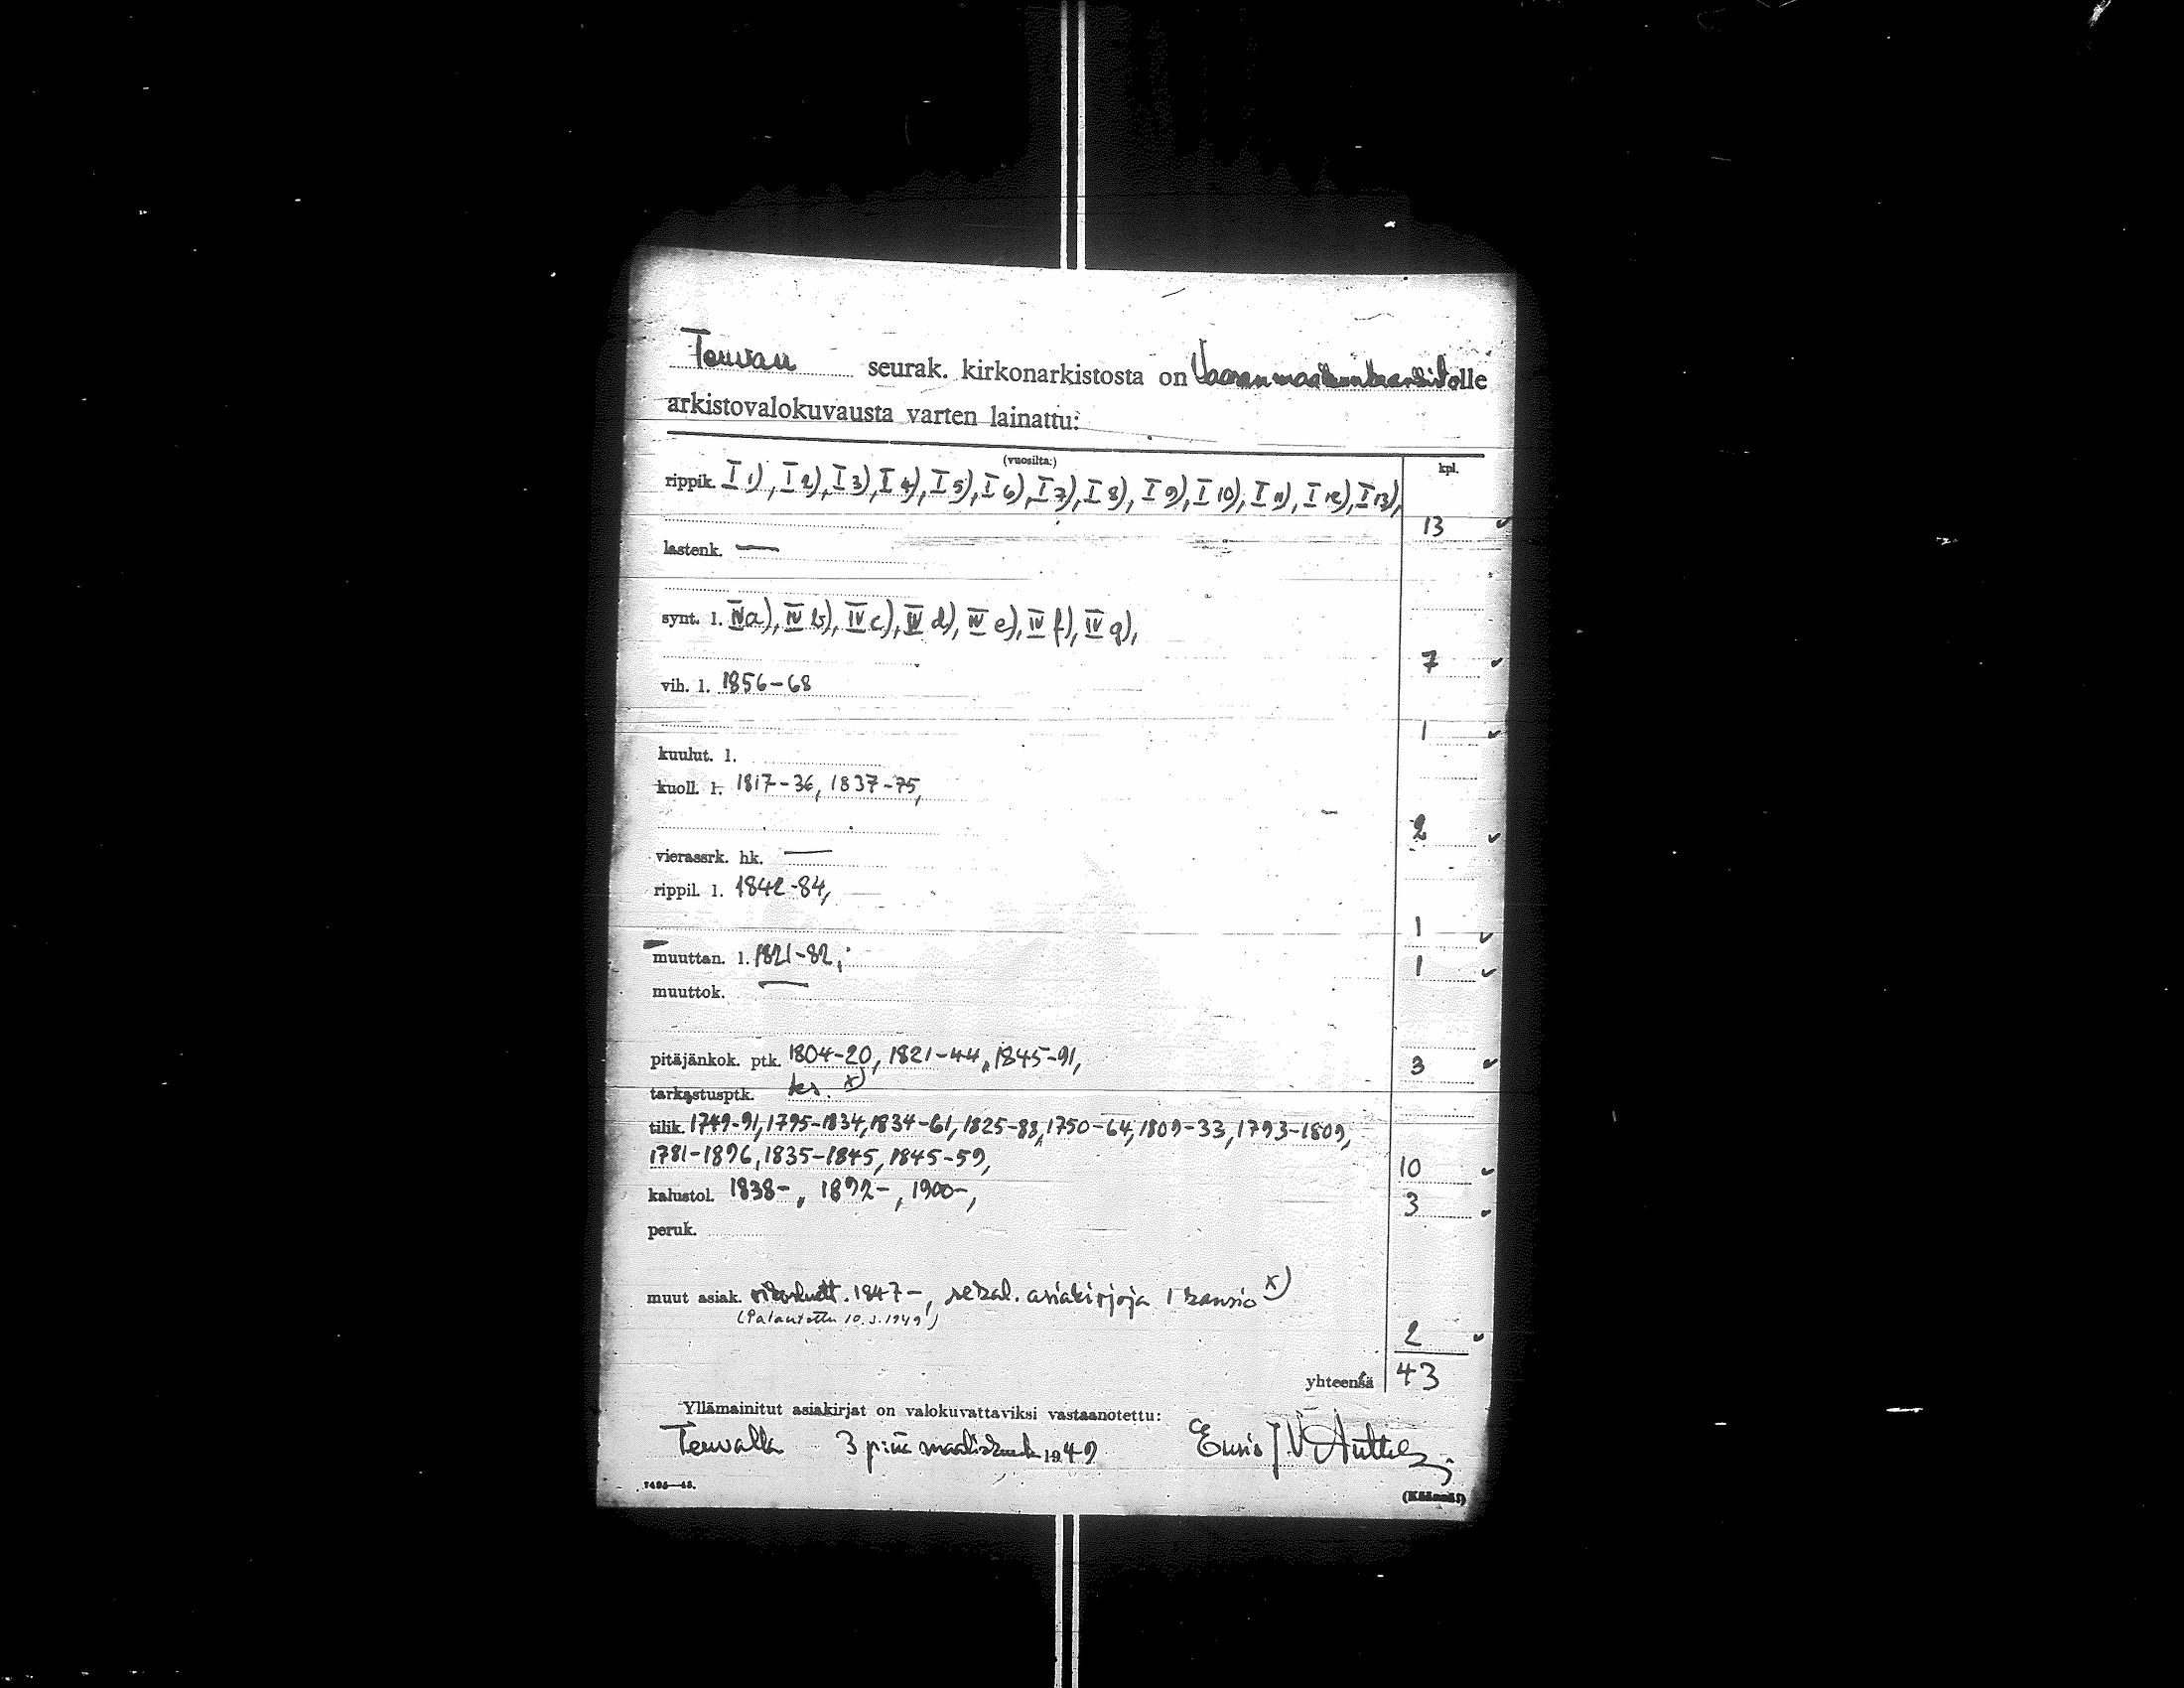 Teuvan seurak. kirkonarkistosta on Vaasan maakunta-arkistolle
arkistovalokuvausta varten lainattu:
(vuosilta:) kpl.
rippik. I 1), I 2), I 3), I 4), I 5), I 6), I 7), I 8), I 9), I 10), I 11), I 12), I 13),
13
lastenk. —
synt. l. IV a), IV b), IV c), IV d), IV e), IV f), IV g),
7
vih. l. 1856-68
1
kuulut. l.
kuoll. l. 1817-36, 1837-75,
2
vierassrk. hk. —
rippil. l. 1842-84,
1
muuttan. l. 1821-82, 1
muuttok. —
pitäjänkok. ptk. 1804-20, 1821-44, 1845-91, 3
tarkastusptk. ks. x)
tilik. 1749-91, 1795-1834, 1834-61, 1825-88, 1750-64, 1809-33, 1793-1809,
1781-1896, 1835-1845, 1845-59, 10
kalustol. 1838-, 1892-, 1900-, 3
peruk.
muut asiak. 1847-, sekal. asiakirjoja 1 kansio x)
(Palautettu 10.3.1949)
2
yhteensä 43
Yllämainitut asiakirjat on valokuvattaviksi vastaanotettu:
Teuvalla 3 p:nä maaliskuuta 1949
(Käännä!)